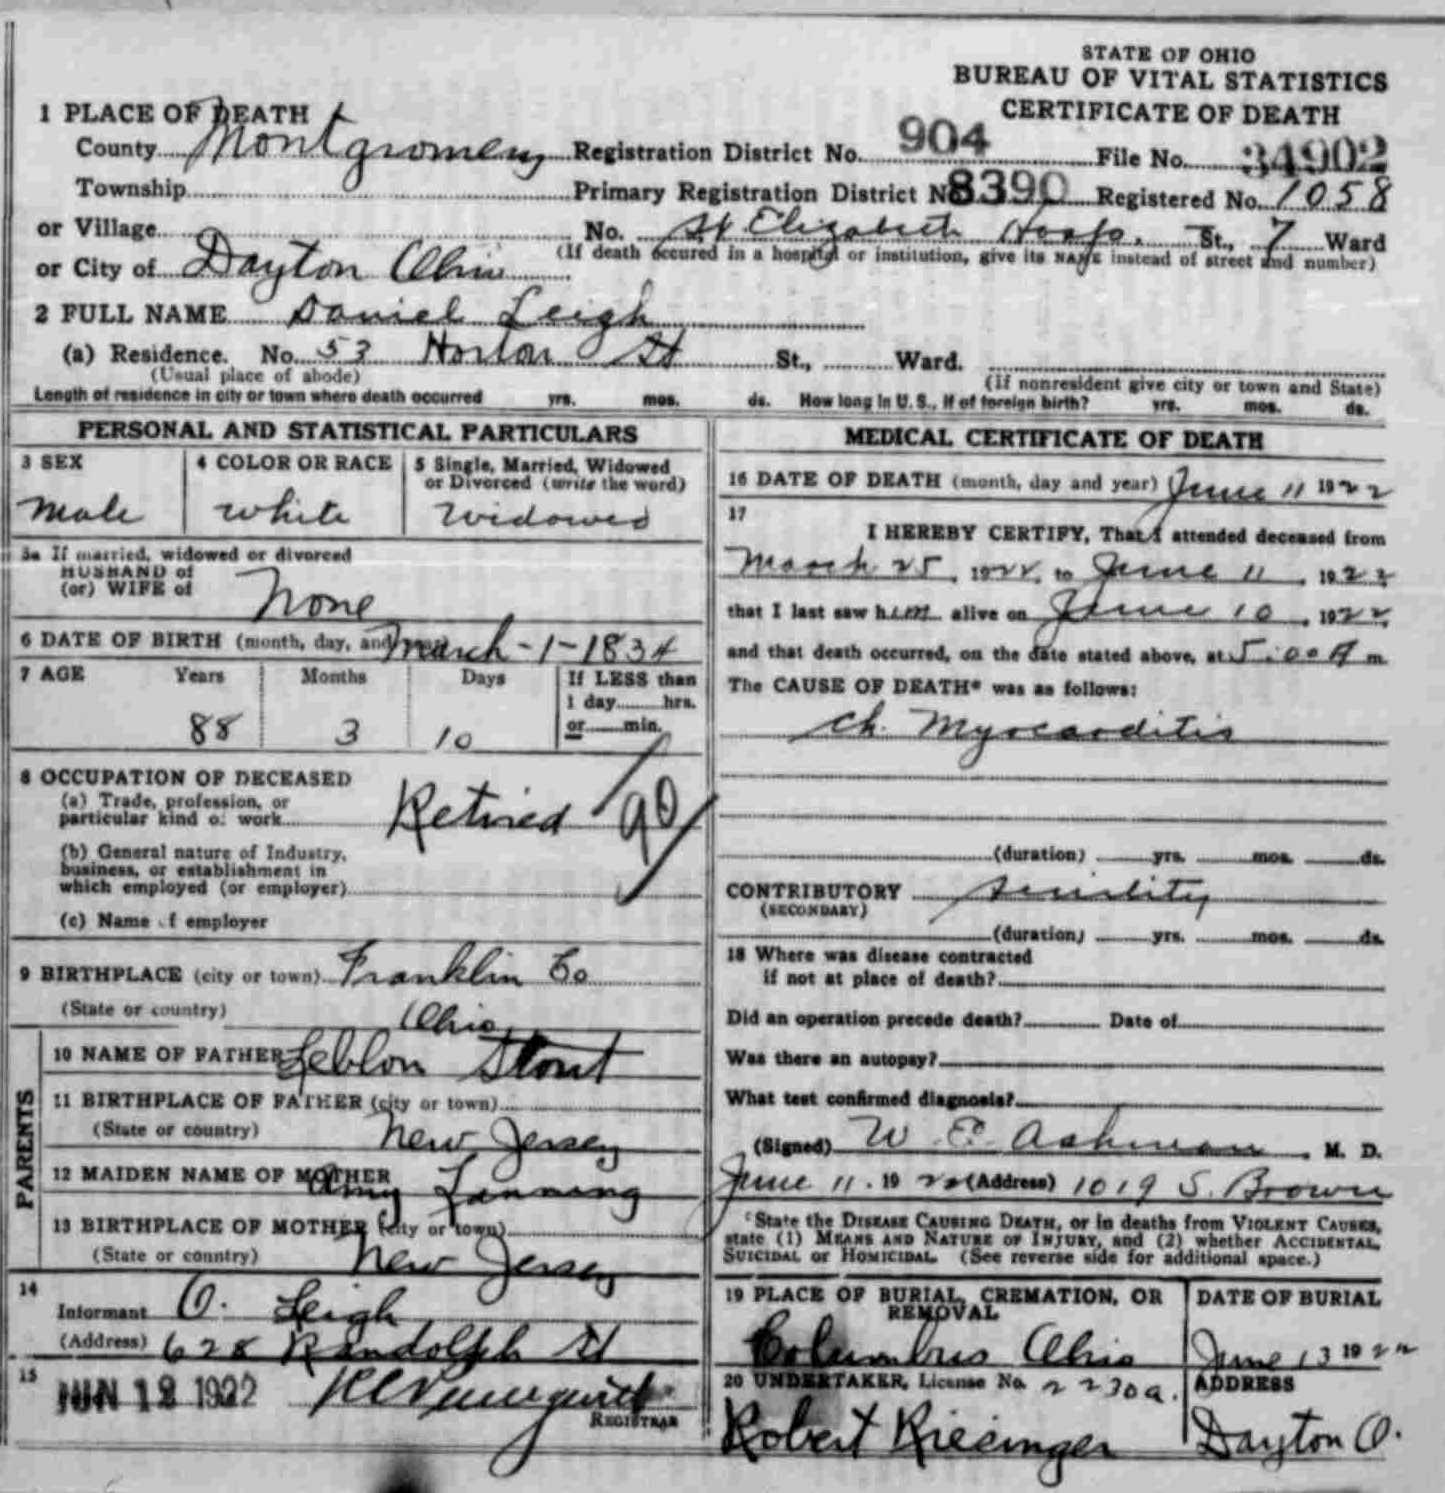 STATE OF OHIO
BUREAU OF VITAL STATISTICS
CERTIFICATE OF DEATH
1 PLACE OF DEATH
County Montgromery Registration District No. 904 File No. 34902
Township Primary Registration District No. 8390 Registered No. 1058
or Village No. St Elizabeth Hosp. St., 7 Ward
or City of Dayton Ohio (If death occured in a hospital or institution, give its NAME instead of street and number)
2 FULL NAME Daniel Leigh
(a) Residence. No. 53 Horton St St., Ward.
(Usual place of abode) (If nonresident give city or town and State)
Length of residence in city or town where death occurred yrs. mos. ds. How long in U. S., if of foreign birth? yrs. mos. ds.
PERSONAL AND STATISTICAL PARTICULARS
3 SEX 4 COLOR OR RACE 5 Single, Married, Widowed
or Divorced (write the word)
Male White Widowed
5a If married, widowed or divorced
HUSBAND of
(or) WIFE of None
6 DATE OF BIRTH (month, day, and March-1-1834
7 AGE Years Months Days If LESS than
1 day hrs.
or min.
88 3 10
8 OCCUPATION OF DECEASED
(a) Trade, profession, or
particular kind of work Retired 90
(b) General nature of Industry,
business, or establishment in
which employed (or employer)
(c) Name of employer
9 BIRTHPLACE (city or town) Franklin Co
(State or country) Ohio
PARENTS
10 NAME OF FATHER Leblon Stout
11 BIRTHPLACE OF FATHER (city or town)
(State or country) New Jersey
12 MAIDEN NAME OF MOTHER
Amy Lanning
13 BIRTHPLACE OF MOTHER (city or town)
(State or country) New Jersey
14
Informant O. Leigh
(Address) 628 Randolph St
15
JUN 12 1922
REGISTRAR
MEDICAL CERTIFICATE OF DEATH
16 DATE OF DEATH (month, day and year) June 11 1922
17
I HEREBY CERTIFY, That I attended deceased from
March 25, 1922, to June 11, 1922
that I last saw him alive on June 10, 1922
and that death occurred, on the date stated above, at 5:00 A m.
The CAUSE OF DEATH* was as follows:
Ch. Myocarditis
(duration) yrs. mos. ds.
CONTRIBUTORY Senility
(SECONDARY)
(duration) yrs. mos. ds.
18 Where was disease contracted
if not at place of death?
Did an operation precede death? Date of
Was there an autopsy?
What test confirmed diagnosis?
(Signed) W. E. Ashman, M. D.
June 11. 19 22 (Address) 1019 S. Brown
*State the DISEASE CAUSING DEATH, or in deaths from VIOLENT CAUSES,
state (1) MEANS AND NATURE OF INJURY, and (2) whether ACCIDENTAL,
SUICIDAL or HOMICIDAL. (See reverse side for additional space.)
19 PLACE OF BURIAL, CREMATION, OR
REMOVAL
DATE OF BURIAL
Columbus Ohio June 13 1922
20 UNDERTAKER, License No. 2230a. ADDRESS
Robert Riesinger Dayton O.